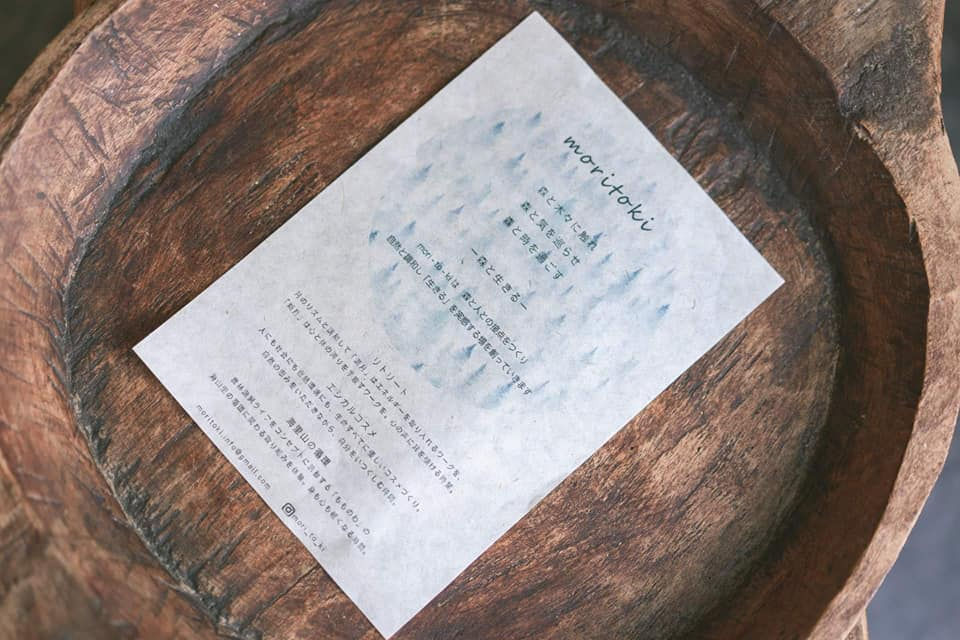 moritoki
森と木々に触れ
森と気を巡らせ
森と時を過ごす
ー森と生きるー
mori - to - ki は 森と人との接点をつくり
自然と調和し「生きる」を実感する場を創っていきます
リトリート
月のリズムと調和して「満月」はエネルギーを取り入れるワークを、
「新月」は心と体の巡りを手放すワークを。心の声に耳を傾ける時間。
エシカルコスメ
人にも社会にも自然環境にも、生命すべてに優しいコスメづくり。
自然の恵みをいただきながら、自分をいつくしむ時間。
海里山の循環
農林漁業ラインをコンセプトに活動する「もものわ」の
海山里の循環に関わる取り組みを体験。身も心も軽くなる時間。
moritoki.info@gmail.com
mori_to_ki